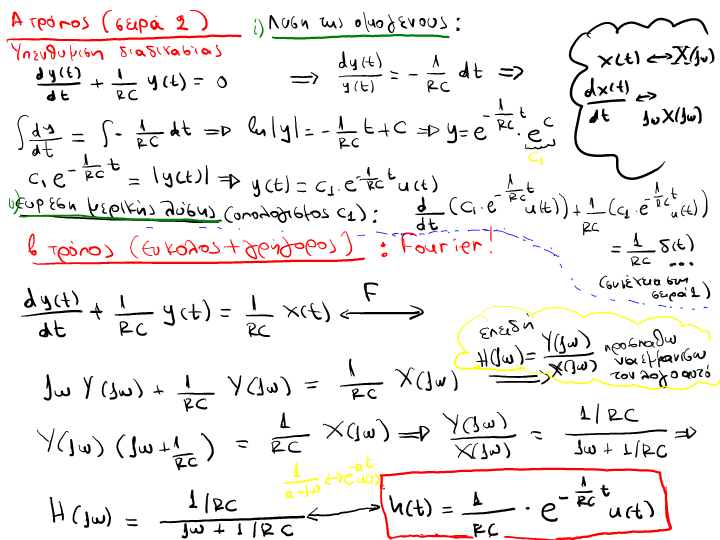 Α τρόπος (σειρά 2) i) Λύση της ομογενούς:
Υπενθύμιση διαδικασίας
dy(t)/dt + 1/RC y(t) = 0 ⟹ dy(t)/y(t) = - 1/RC dt ⟹
x(t) ↔ X(jω)
dx(t)/dt ↔ jω X(jω)
∫ dy/dt = ∫ - 1/RC dt ⟹ ln|y| = - 1/RC t + C ⟹ y = e^{-1/RC t} · e^C
C1
C1 e^{-1/RC t} = |y(t)| ⟹ y(t) = C1 · e^{-1/RC t} u(t)
Εύρεση μερικής λύσης (υπολογισμός C1): d/dt (C1 · e^{-1/RC t} u(t)) + 1/RC (C1 · e^{-1/RC t} u(t))
= 1/RC δ(t)
...
(συνέχεια στη σειρά 2)
β τρόπος (εύκολος + γρήγορος): Fourier!
dy(t)/dt + 1/RC y(t) = 1/RC x(t) ⟷ F
επειδή
H(jω) = Y(jω)/X(jω) προσπαθώ να εμφανίσω τον λόγο αυτό
jω Y(jω) + 1/RC Y(jω) = 1/RC X(jω) ⟹
Y(jω) (jω + 1/RC) = 1/RC X(jω) ⟹ Y(jω)/X(jω) = 1/RC / jω + 1/RC ⟹
1/a+jω ↔ e^{-at} u(t)
H(jω) = 1/RC / jω + 1/RC ⟷ h(t) = 1/RC · e^{-1/RC t} u(t)